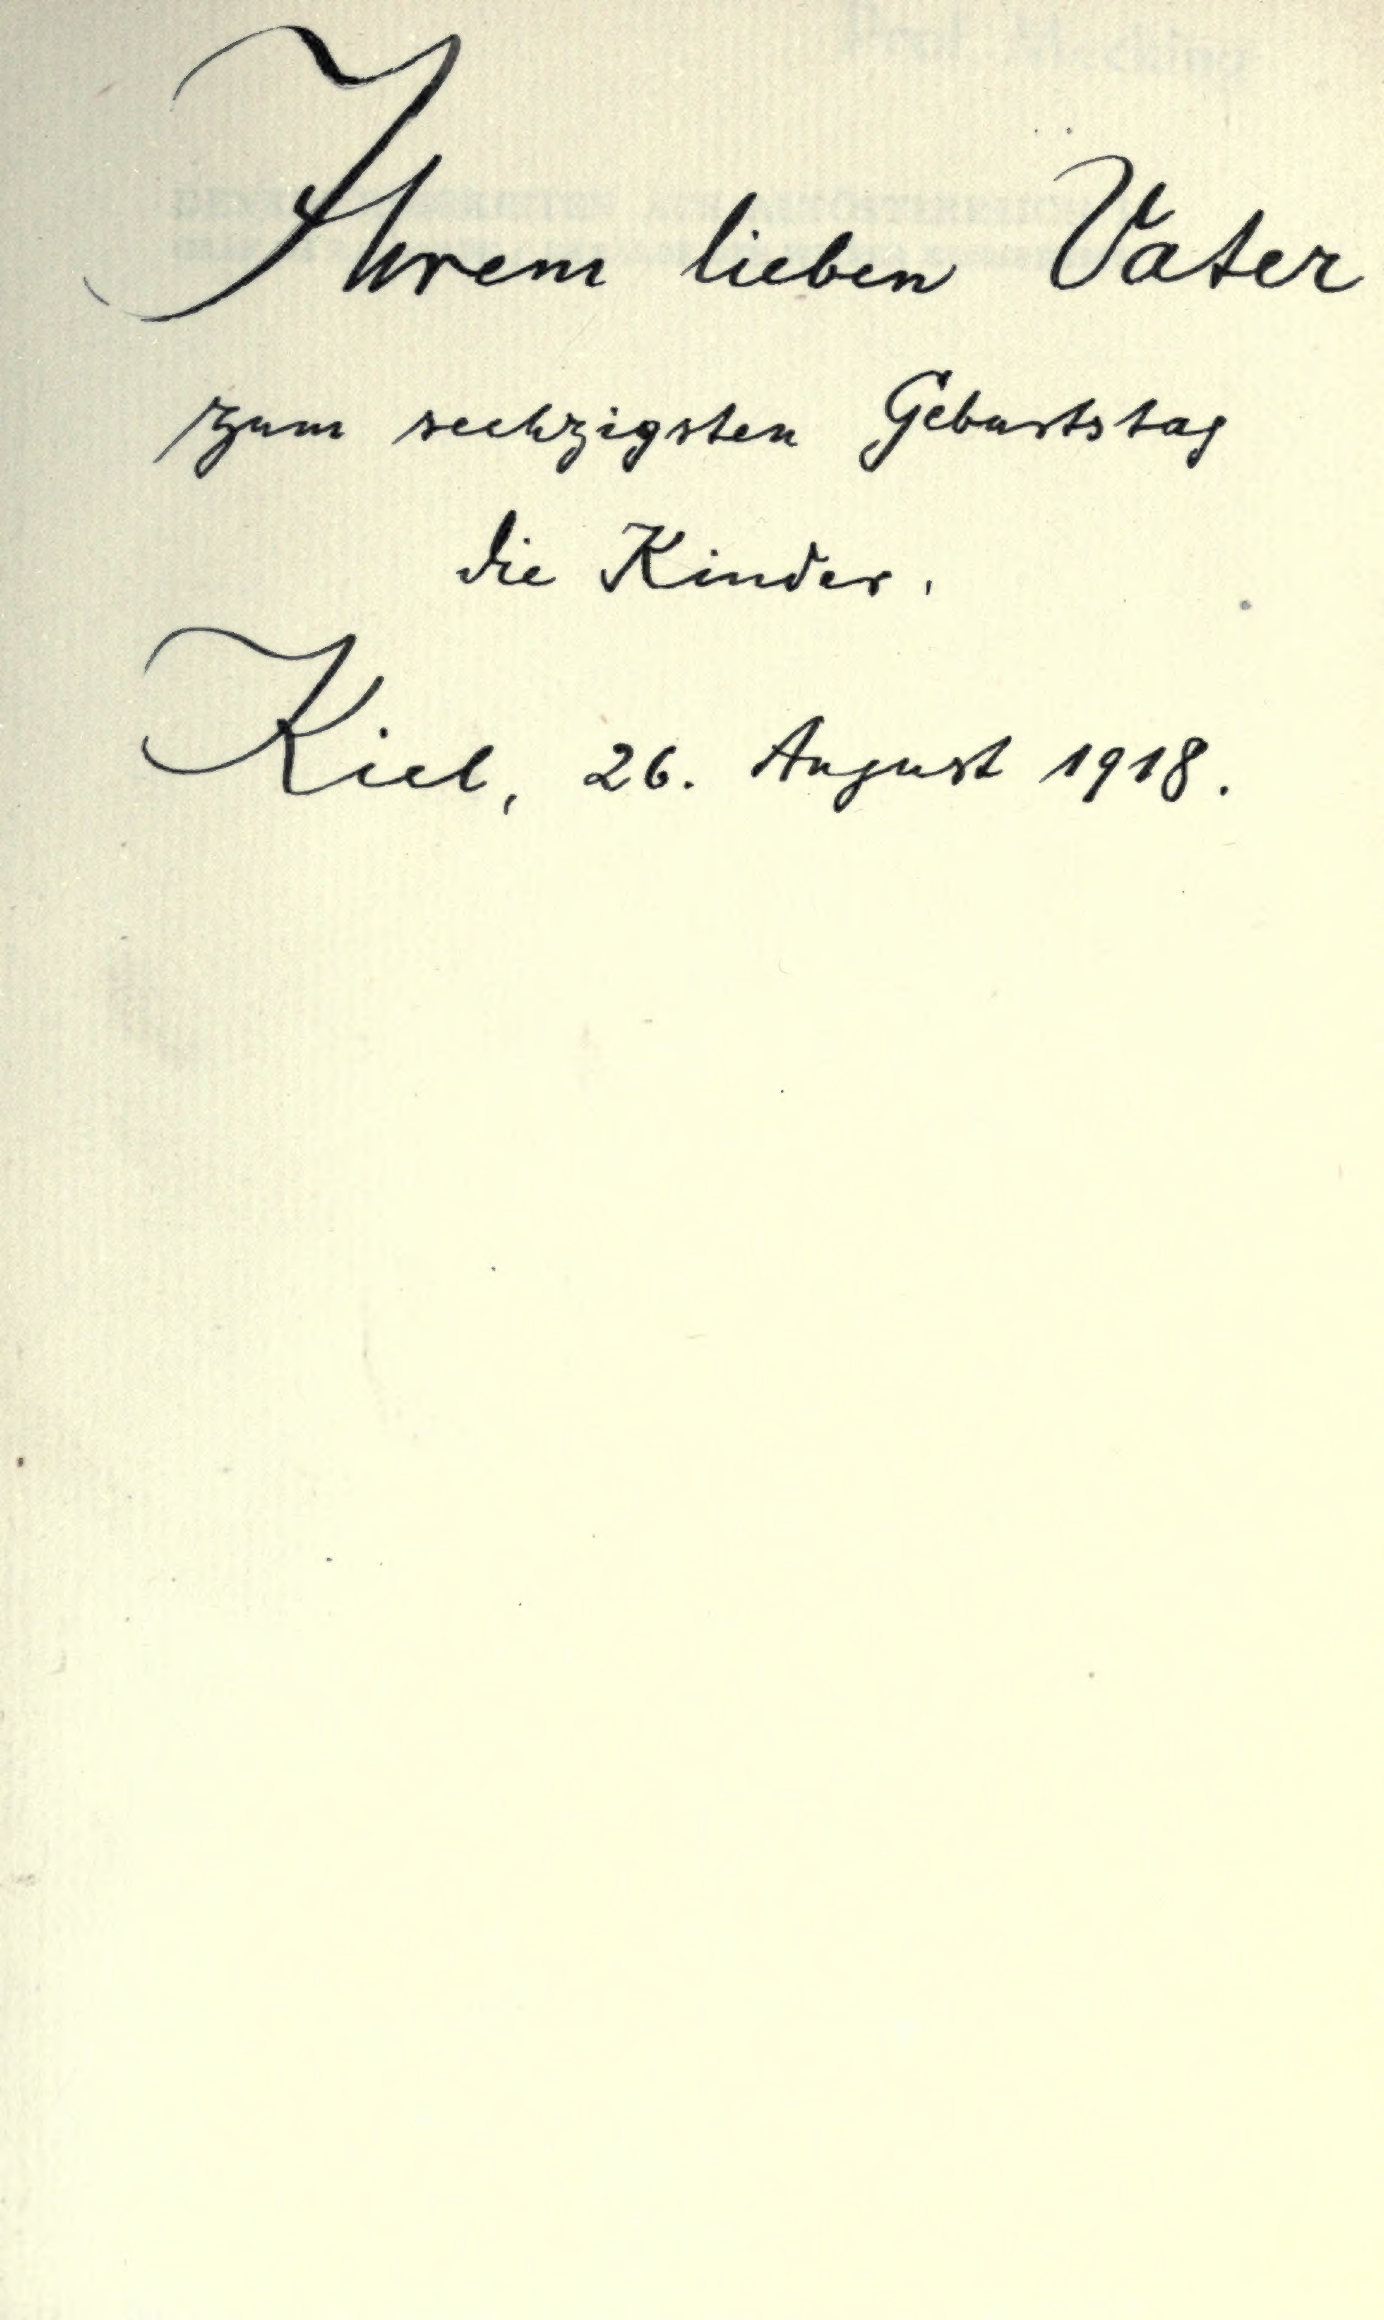 Ihrem lieben Vater
zum sechzigsten Geburtstag
die Kinder.
Kiel, 26. August 1918.